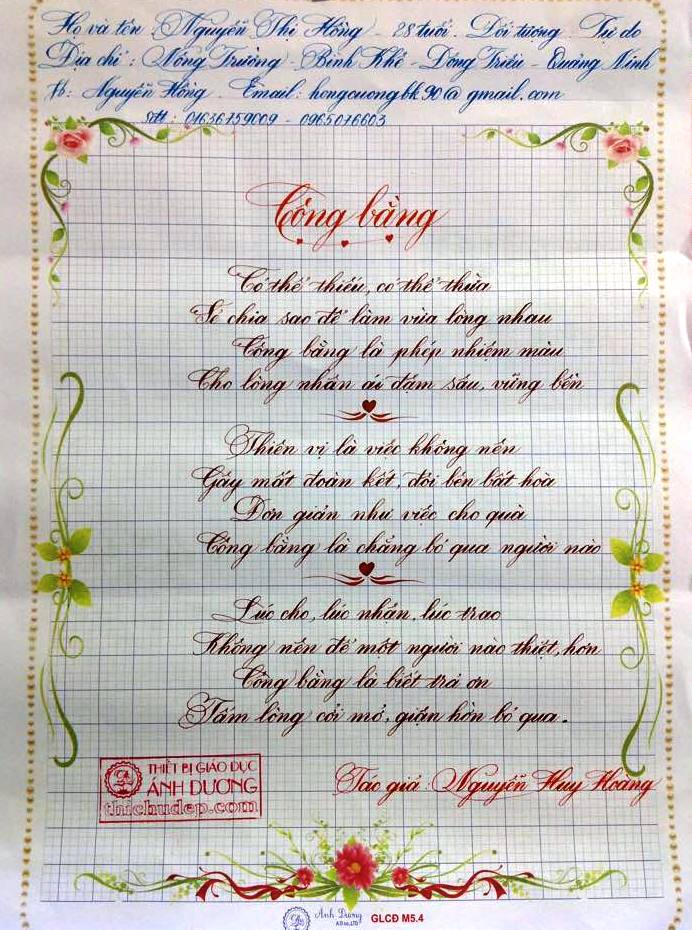 Họ và tên : Nguyễn Thị Hồng - 28 tuổi. Đối tượng : Tự do
Địa chỉ : Nông Trường - Bình Khê - Đông Triều - Quảng Ninh
Fb: Nguyễn Hồng. Email: hongcuongbk90@gmail.com
Sđt : 01636759009 - 0965076603
Công bằng
Có thể thiếu, có thể thừa
Sẻ chia sao để làm vừa lòng nhau
Công bằng là phép nhiệm màu
Cho lòng nhân ái đậm sâu, vững bền
Thiên vị là việc không nên
Gây mất đoàn kết, đôi bên bất hoà
Đơn giản như việc cho quà
Công bằng là chẳng bỏ qua người nào
Lúc cho, lúc nhận, lúc trao
Không nên để một người nào thiệt, hơn
Công bằng là biết trả ơn
Tấm lòng cởi mở, giận hờn bỏ qua.
Tác giả : Nguyễn Huy Hoàng
THIẾT BỊ GIÁO DỤC
ÁNH DƯƠNG
thichudep.com
Ánh Dương
GLCĐ M5.4